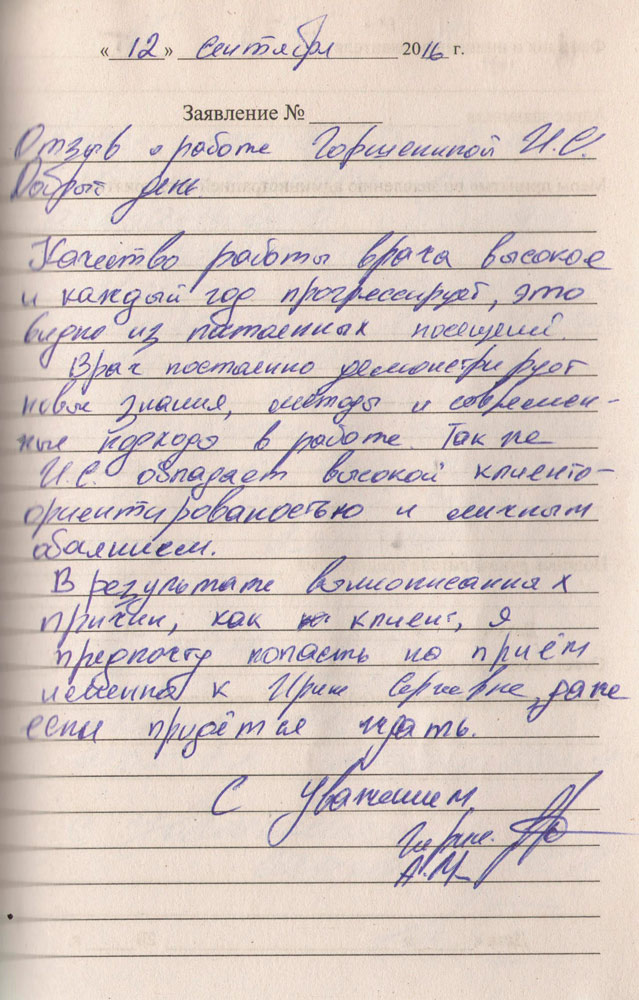 « 12 » сентября 2016 г.
Заявление № ______
Отзыв о работе Горшениной И.С.
Добрый день
Качество работы врача высокое
и каждый год прогрессирует, это
видно из посещений.
Врач постоянно демонстрирует
новые знания, методы и современ-
ные подходы в работе. Так же
И.С. обладает высокой клиенто-
ориентированостью и личным
обаянием.
В результате вышеописанных
причин, как клиент, я
предпочту попасть на приём
именно к Ирине Сергеевне, даже
если придётся ждать.
С уважением,
А.М.